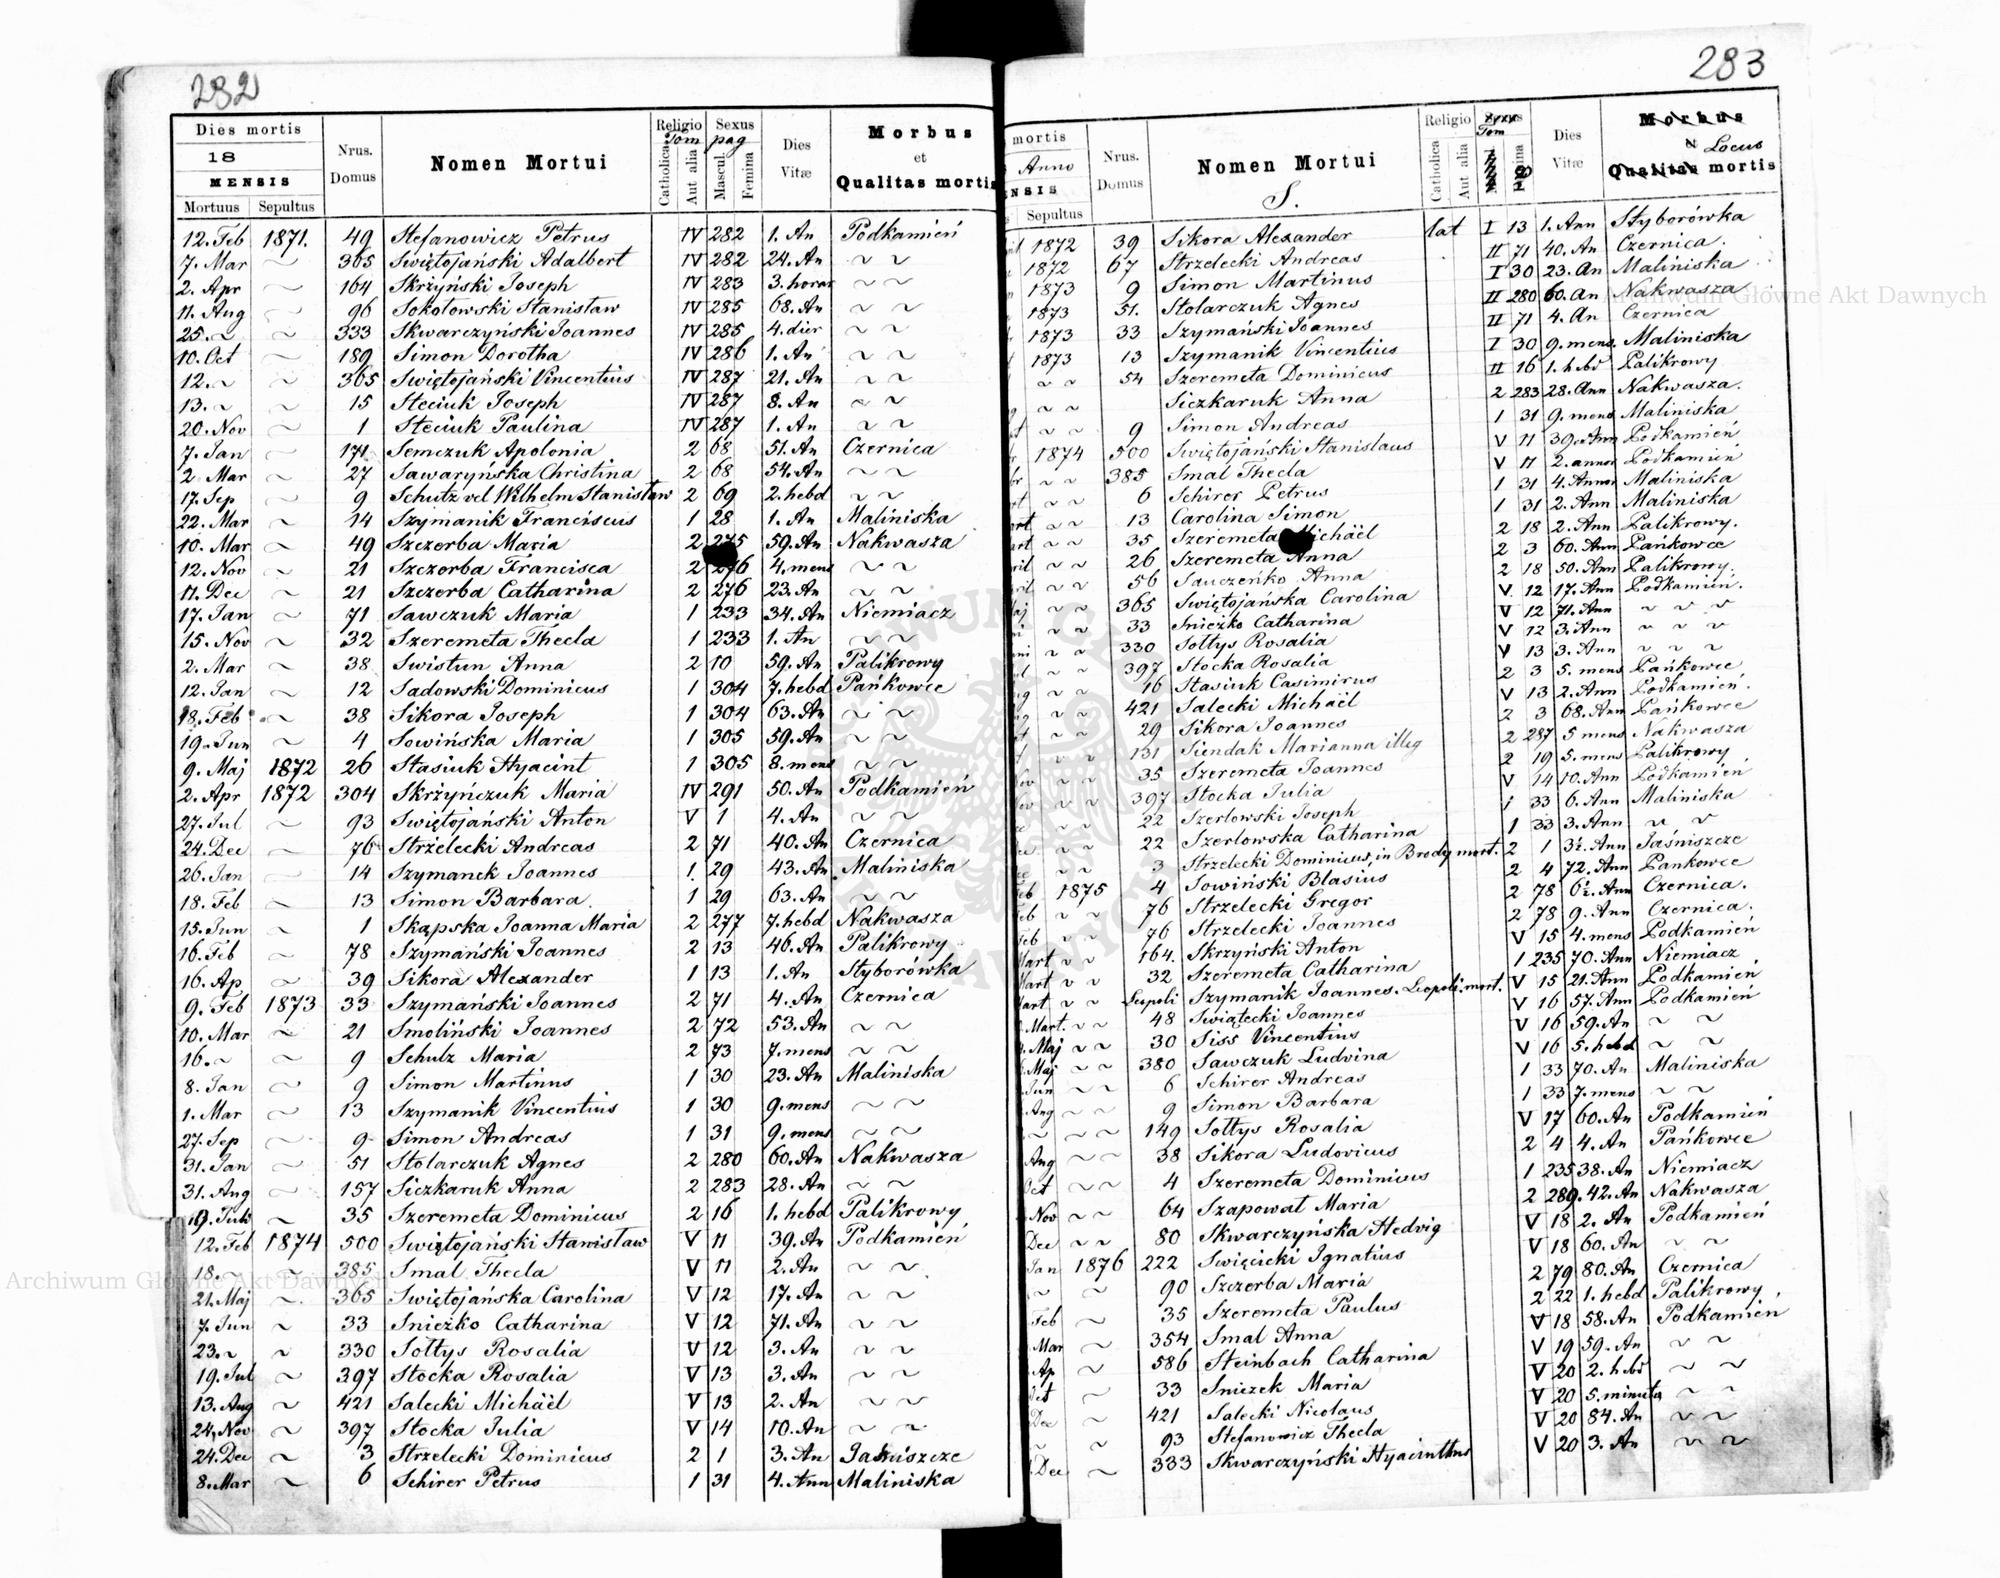 282
Dies mortis
18
MENSIS
Mortuus Sepultus
Nrus. Domus
Nomen Mortui
Religio Tom
Catholica Aut alia
Sexus pag
Mascul. Femina
Dies Vitæ
Morbus et Qualitas mortis
12. Feb 1871. 49 Stefanowicz Petrus IV 282 1. An Podkamień
7. Mar ~ 365 Swiętojański Adalbert IV 282 24. An ~ ~
2. Apr ~ 164 Skrzyński Joseph IV 283 3. horar ~ ~
11. Aug ~ 96 Sokołowski Stanisław IV 285 68. An ~ ~
25. ~ ~ 333 Skwarczyński Joannes IV 285 4. dier ~ ~
10. Oct ~ 189 Simon Dorotha IV 286 1. An ~ ~
12. ~ ~ 365 Swiętojański Vincentius IV 287 21. An ~ ~
13. ~ ~ 15 Steciuk Joseph IV 287 8. An ~ ~
20. Nov ~ 1 Steciuk Paulina IV 287 1. An ~ ~
7. Jan ~ 171 Semczuk Apolonia 2 68 51. An Czernica
2. Mar ~ 27 Sawaryńska Christina 2 68 54. An ~ ~
17. Sep ~ 9 Schutz vel Wilhelm Stanisław 2 69 2. hebd ~ ~
22. Mar ~ 14 Szymanik Franciscus 1 28 1. An Maliniska
10. Mar ~ 49 Szczerba Maria 2 275 59. An Nakwasza
12. Nov ~ 21 Szczerba Francisca 2 276 4. mens ~ ~
11. Dec ~ 21 Szczerba Catharina 2 276 23. An ~ ~
17. Jan ~ 71 Sawczuk Maria 1 233 34. An Niemiacz
15. Nov ~ 32 Szeremeta Thecla 1 233 1. An ~ ~
2. Mar ~ 38 Swistun Anna 2 10 59. An Palikrowy
12. Jan ~ 12 Sadowski Dominicus 1 304 7. hebd Pańkowce
18. Feb ~ 38 Sikora Joseph 1 304 63. An ~ ~
19. Jun ~ 4 Sowińska Maria 1 305 59. An ~ ~
9. Maj 1872 26 Stasiuk Hyacint 1 305 8. mens ~ ~
2. Apr 1872 304 Skrżyńczuk Maria IV 291 50. An Podkamień
27. Jul ~ 93 Swiętojański Anton V 1 4. An ~ ~
24. Dec ~ 76 Strzelecki Andreas 2 71 40. An Czernica
26. Jan ~ 14 Szymanek Joannes 1. 29 43. An Maliniska
18. Feb ~ 13 Simon Barbara 1 29 63. An ~ ~
15. Jun ~ 1 Skąpska Joanna Maria 2 277 7. hebd Nakwasza
16. Feb ~ 78 Szymański Joannes 2 13 46. An Palikrowy
16. Ap ~ 39 Sikora Alexander 1 13 1. An Styborówka
9. Feb 1873 33 Szymański Joannes 2 71 4. An Czernica
10. Mar ~ 21 Smoliński Joannes 2 72 53. An ~ ~
16. ~ ~ 9 Schulz Maria 2 73 7. mens ~ ~
8. Jan ~ 9 Simon Martinus 1 30 23. An Maliniska
1. Mar ~ 13 Szymanik Vincentius 1 30 9. mens ~ ~
27. Sep ~ 9 Simon Andreas 1 31 9. mens ~ ~
31. Jan ~ 51 Stolarczuk Agnes 2 280 60. An Nakwasza
31. Aug ~ 157 Siczkaruk Anna 2 283 28. An ~ ~
19. Juli ~ 35 Szeremeta Dominicus 2 16 1. hebd Palikrowy
12. Feb 1874 500 Swiętojański Stanisław V 11 39. An Podkamień
18. ~ ~ 385 Smal Thecla V 11 2. An ~ ~
21. Maj ~ 365 Swiętojańska Carolina V 12 17. An ~ ~
7. Jun ~ 33 Snieżko Catharina V 12 71. An ~ ~
23. ~ ~ 330 Sołtys Rosalia V 12 3. An ~ ~
19. Jul ~ 397 Stocka Rosalia V 13 3. An ~ ~
13. Aug ~ 421 Salecki Michäel V 13 2. An ~ ~
24. Nov ~ 397 Stocka Julia V 14 10. An ~ ~
24. Dec ~ 3 Strzelecki Dominicus 2 1 3. An Jaśniszcze
8. Mar ~ 6 Schirer Petrus 1 31 4. Ann Maliniska
283
mortis
Anno
NSIS
Sepultus
Nrus. Domus
Nomen Mortui
S.
Religio
Catholica Aut alia
Tom
Dies Vitæ
Morbus
Locus
Qualitas mortis
1872 39 Sikora Alexander lat I 13 1. Ann Styborówka
1872 67 Strzelecki Andreas II 71 40. An Czernica.
1873 9 Simon Martinus I 30 23. An Maliniska
1873 51. Stolarczuk Agnes II 280 60. An Nakwasza
1873 33 Szymański Joannes II 71 4. An Czernica
1873 13 Szymanik Vincentius I 30 9. mens. Maliniska
~ ~ 54 Szeremeta Dominicus II 16 1. hebd Palikrowy
~ ~ Siczkaruk Anna 2 283 28. Ann Nakwasza.
~ ~ 9 Simon Andreas 1 31 9. mens Maliniska
1874 500 Swiętojański Stanislaus V 11 39. Ann Podkamień
~ ~ 385 Smal Thecla V 11 2. annor Podkamień
~ ~ 6 Schirer Petrus 1 31 4. Annor Maliniska
~ ~ 13 Carolina Simon 1 31 2. Ann Maliniska
~ ~ 35 Szeremeta Michäel 2 18 2. Ann Palikrowy.
~ ~ 26 Szeremeta Anna 2 3 60. Ann Pańkowce
~ ~ 56 Sauczeńko Anna 2 18 50. Ann Palikrowy.
~ ~ 365 Swiętojańska Carolina V 12 17. Ann Podkamień.
~ ~ 33 Snieżko Catharina V 12 71. Ann ~ ~ ~
~ ~ 330 Sołtys Rosalia V 12 3. Ann ~ ~ ~
~ ~ 397 Stocka Rosalia V 13 3. Ann ~ ~ ~
~ ~ 16 Stasiuk Casimirus 2 3 5. mens Pańkowce
~ ~ 421 Salecki Michäel V 13 2. Ann Podkamień.
~ ~ 29 Sikora Joannes 2 3 68. Ann Pańkowce
~ ~ 131 Siendak Marianna illeg 2 287 5 mens Nakwasza
~ ~ 35 Szeremeta Joannes 2 19 5. mens Palikrowy
~ ~ 397 Stocka Julia V 14 10. Ann Podkamień
~ ~ 22 Szerłowski Joseph 1 33 6. Ann Maliniska
~ ~ 22 Szerlowska Catharina 1 33 3. Ann ~ ~
~ ~ 3 Strzelecki Dominicus, in Brody mort. 2 1 3½. Ann Jaśniszcze
Feb 1875 4 Sowiński Blasius 2 4 72. Ann Pankowce
Feb ~ ~ 76 Strzelecki Gregor 2 78 6½. Ann Czernica.
Feb ~ ~ 76 Strzelecki Joannes 2 78 9. Ann Czernica.
Mart ~ ~ 164. Skrzyński Anton V 15 4. mens Podkamień
Mart ~ ~ 32 Szeremeta Catharina 1 235 70. Ann Niemiacz
Mart ~ ~ Leopoli Szymanik Joannes. Leopoli. mort. V 15 21. Ann Podkamień
Mart. ~ ~ 48 Swiątecki Joannes V 16 57. Ann Podkamień
Maj ~ ~ 30 Siss Vincentius V 16 59. An ~ ~
Maj ~ ~ 380 Sawczuk Ludvina V 16 5. hebd ~ ~
Jun ~ ~ 6 Schirer Andreas 1 33 70. An Maliniska
Aug ~ ~ 9 Simon Barbara 1 33 7. mens ~ ~
~ ~ ~ 149 Sołtys Rosalia V 17 60. An Podkamień
Aug ~ ~ 38 Sikora Ludovicus 2 4 4. An Pańkowce
Oct ~ ~ 4 Szeremeta Dominicus 1 235 38. An Niemiacz
Nov ~ ~ 64 Szapował Maria 2 289. 42. An Nakwasza
Dec ~ ~ 80 Skwarczyńska Hedvig V 18 2. An Podkamień
Jan 1876 222 Swięcicki Ignatius V 18 60. An ~ ~
~ ~ 90 Szczerba Maria 2 79 80. An Czernica
Feb ~ 35 Szeremeta Paulus 2 22 1. hebd Palikrowy
Mar ~ 354 Smal Anna V 18 58. An Podkamień
Ap ~ 586 Steinbach Catharina V 19 59. An ~ ~
Oct ~ 33 Sniezek Maria V 20 2. hebd ~ ~
Dec ~ 421 Salecki Nicolaus V 20 5. minuta ~ ~
~ ~ 93 Stefanowicz Thecla V 20 84. An ~ ~
Dec ~ 333 Skwarczyński Hyacinthus V 20 3. An ~ ~
Archiwum Główne Akt Dawnych
Archiwum Główne Akt Dawnych